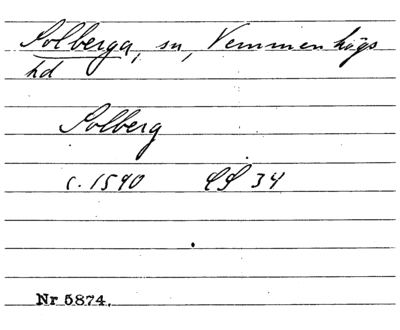 Solberga, sn, Vemmenhögs
hd
Solberg
c. 1590 SS 34
Nr 5874.